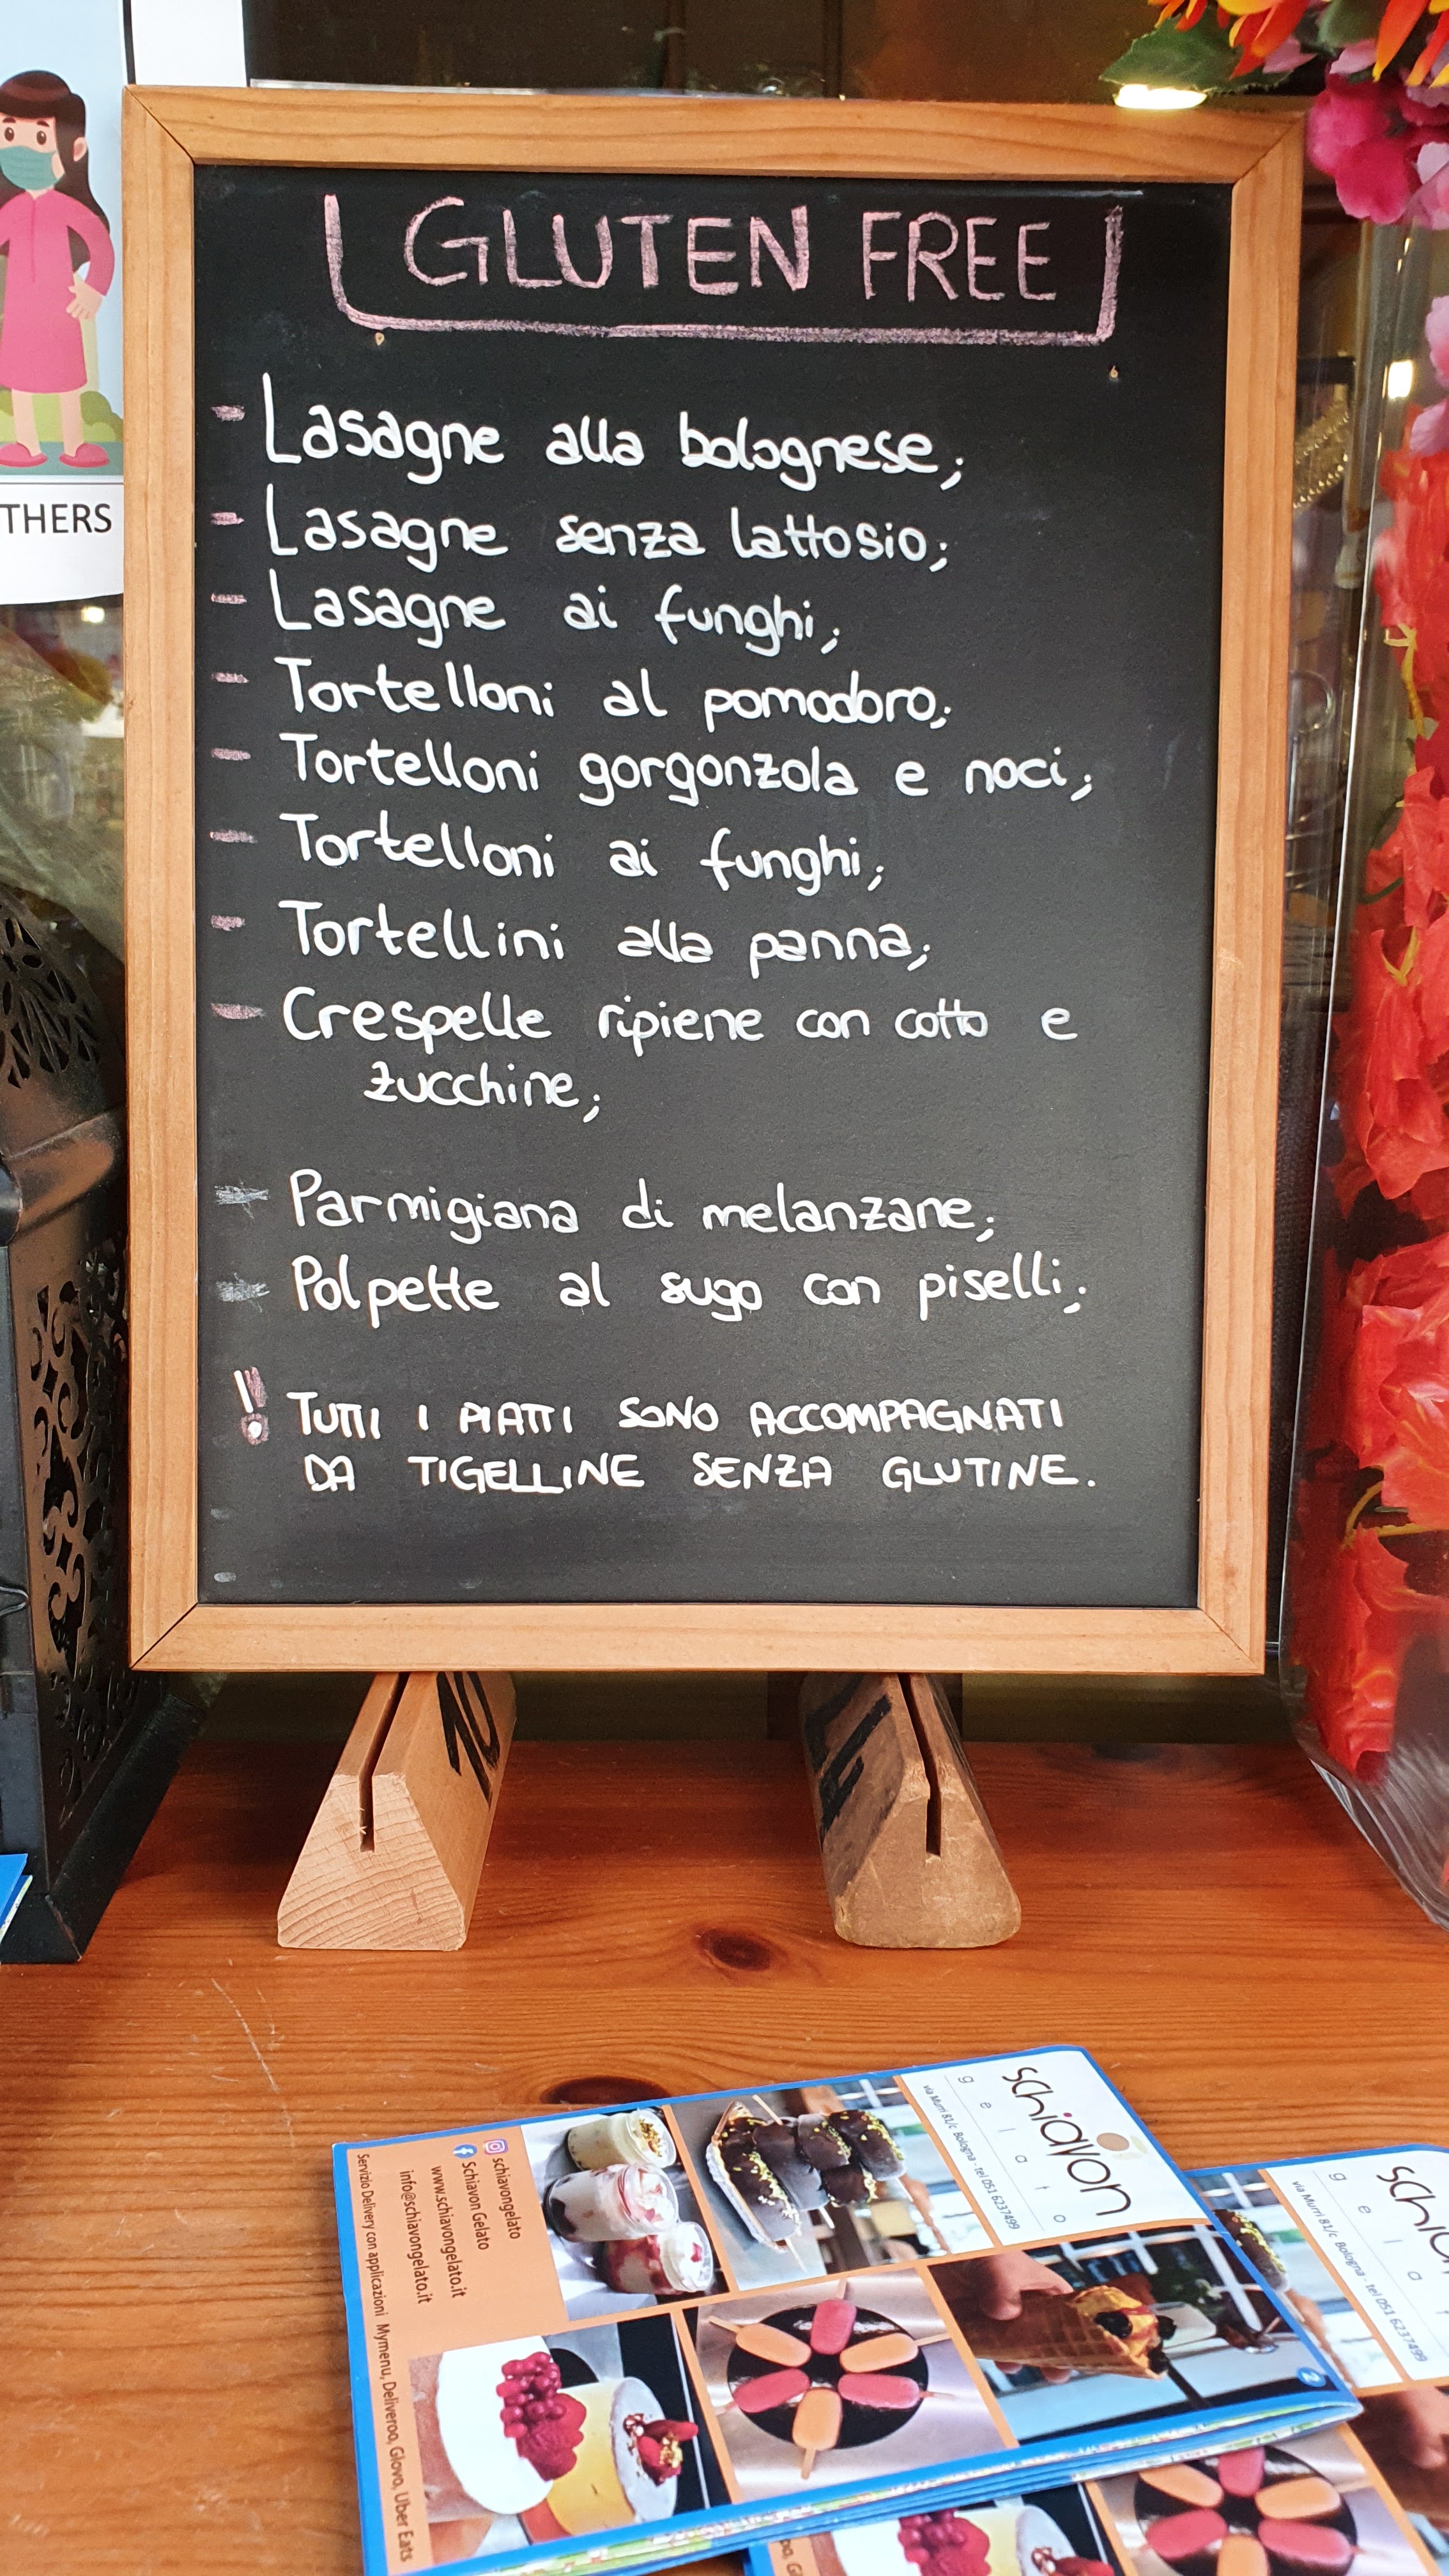 THERS
GLUTEN FREE
- Lasagne alla bolognese;
- Lasagne senza lattosio;
- Lasagne ai funghi;
- Tortelloni al pomodoro;
- Tortelloni gorgonzola e noci;
- Tortelloni ai funghi;
- Tortellini alla panna;
- Crespelle ripiene con cotto e
zucchine;
- Parmigiana di melanzane;
- Polpette al sugo con piselli;
! TUTTI I PIATTI SONO ACCOMPAGNATI
DA TIGELLINE SENZA GLUTINE.
schiavon
gelato
via Murri 81/c Bologna - tel 051 6237499
schiavongelato
Schiavon Gelato
www.schiavongelato.it
info@schiavongelato.it
Servizio Delivery con applicazioni Mymenu, Deliveroo, Glovo, Uber Eats
via Murri 81/c Bologna - tel 051 6237499